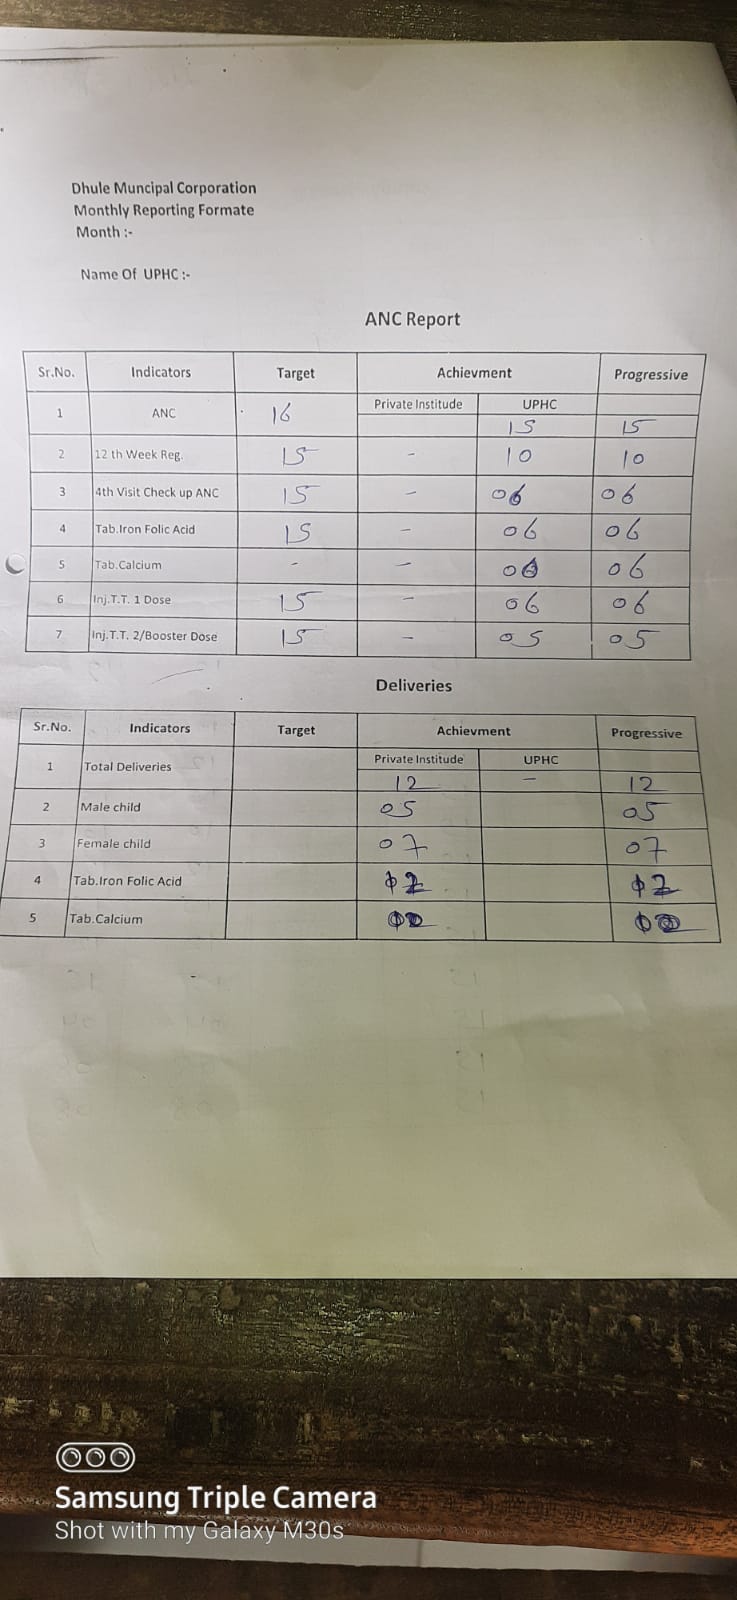 Dhule Muncipal Corporation
Monthly Reporting Formate
Month :-
Name Of UPHC :-
ANC Report
Sr.No. Indicators Target Achievment Progressive
Private Institude UPHC
1 ANC 16 15 15
2 12 th Week Reg. 15 - 10 10
3 4th Visit Check up ANC 15 - 06 06
4 Tab.Iron Folic Acid 15 - 06 06
5 Tab.Calcium - - 06
6 Inj.T.T. 1 Dose 15 - 06 06
7 Inj.T.T. 2/Booster Dose 15 - 05 05
Deliveries
Sr.No. Indicators Target Achievment Progressive
Private Institude UPHC
1 Total Deliveries 12 - 12
2 Male child 05 05
3 Female child 07 07
4 Tab.Iron Folic Acid
5 Tab.Calcium
Samsung Triple Camera
Shot with my Galaxy M30s